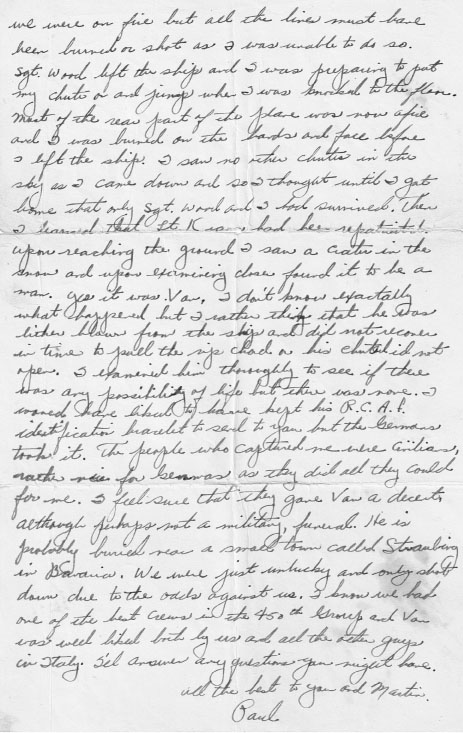 we were on fire but all the lines must have
been burned or shot as I was unable to do so.
Sgt. Wood left the ship and I was preparing to put
my chute on and jump when I was knocked to the floor.
Most of the rear part of the plane was now afire
and I was burned on the hands and face before
I left the ship. I saw no other chutes in the
sky as I came down and so I thought until I got
home that only Sgt. Wood and I had survived. Then
I learned that Lt. had been repatriated.
Upon reaching the ground I saw a crater in the
snow and upon examining closer found it to be a
man. Yes it was Van. I don't know exactally
what happened but I rather think that he was
either blown from the ship and did not recover
in time to pull the rip chord or his chute did not
open. I examened him thoroughly to see if there
was any possibility of life but there was none. I
would have liked to have kept his R.C.A.F.
identification bracelet to send to you but the Germans
took it. The people who captured me were Civilians,
rather nice for Germans as they did all they could
for me. I feel sure that they gave Van a decent,
although perhaps not a military, funeral. He is
probably buried near a small town called Straubing
in Bavaria. We were just unlucky and only shot
down due to the odds against us. I know we had
one of the best crews in the 450th Group and Van
was well liked both by us and all the other guys
in Italy. I'll answer any questions you might have.
All the best to you and Martin.
Paul